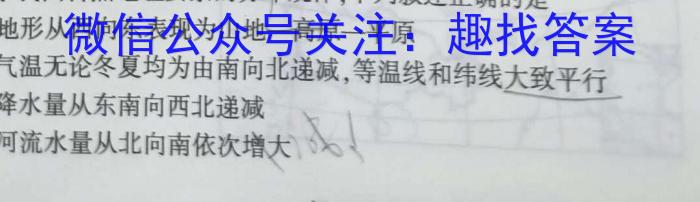 下列叙述正确的是
地形从西向东表现为山地—高原—平原
微信公众号关注：趣找答案
气温无论冬夏均为由南向北递减，等温线和纬线大致平行
降水量从东南向西北递减
河流水量从北向南依次增大